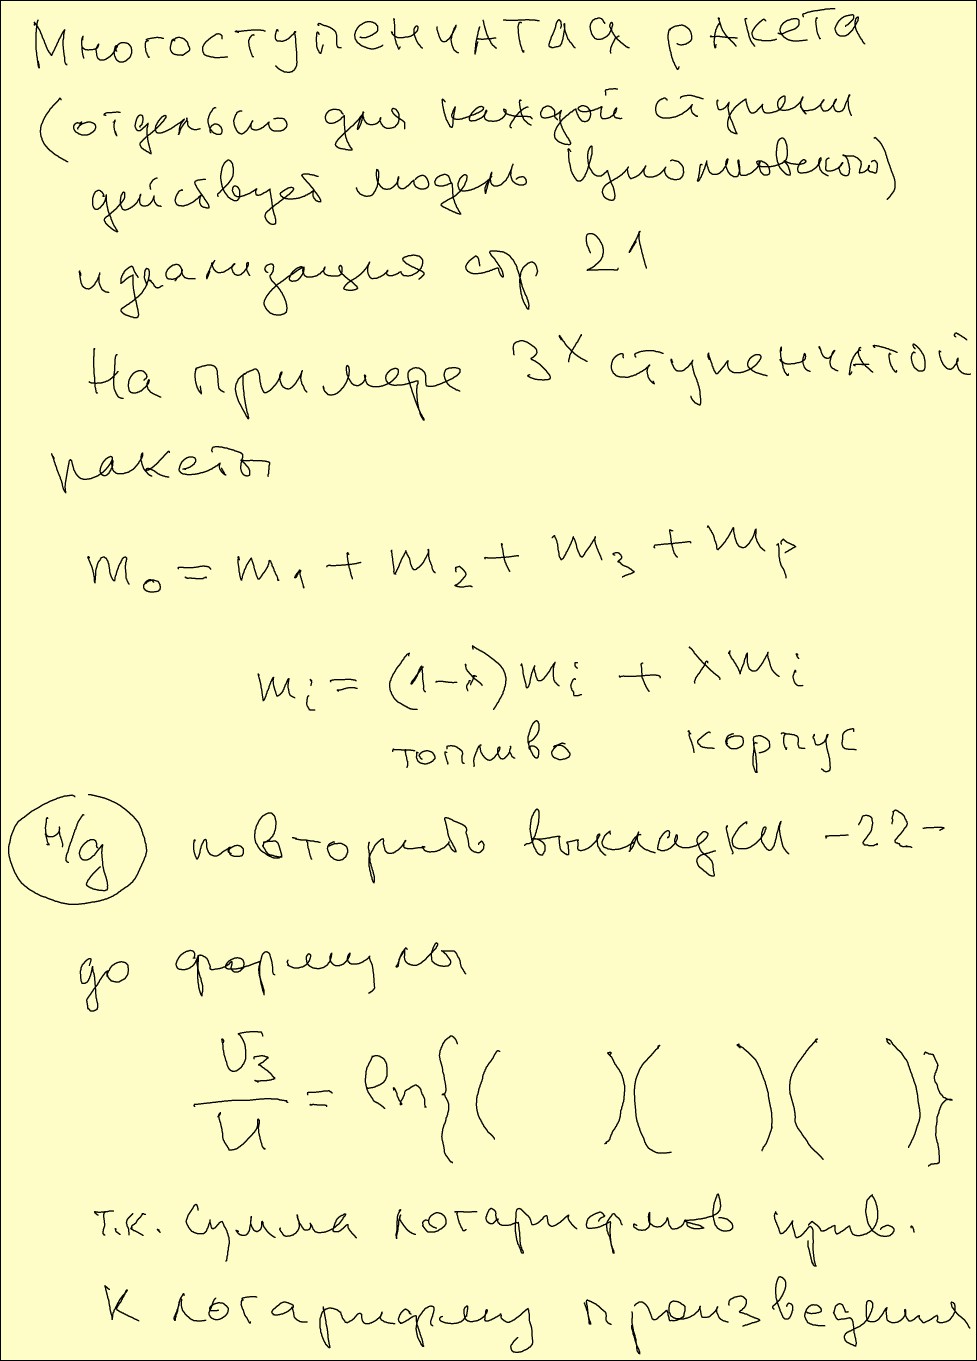 Многоступенчатая ракета
(отдельно для каждой ступени
действует модель Циолковского)
идеализация стр 21
На примере 3х ступенчатой
ракеты
m₀ = m₁ + m₂ + m₃ + mₚ
mᵢ = (1-λ)mᵢ + λmᵢ
топливо корпус
н/д повторить выкладки -22-
до формулы
υ₃/u = ln{( )( )( )}
т.к. сумма логарифмов прив.
к логарифму произведения